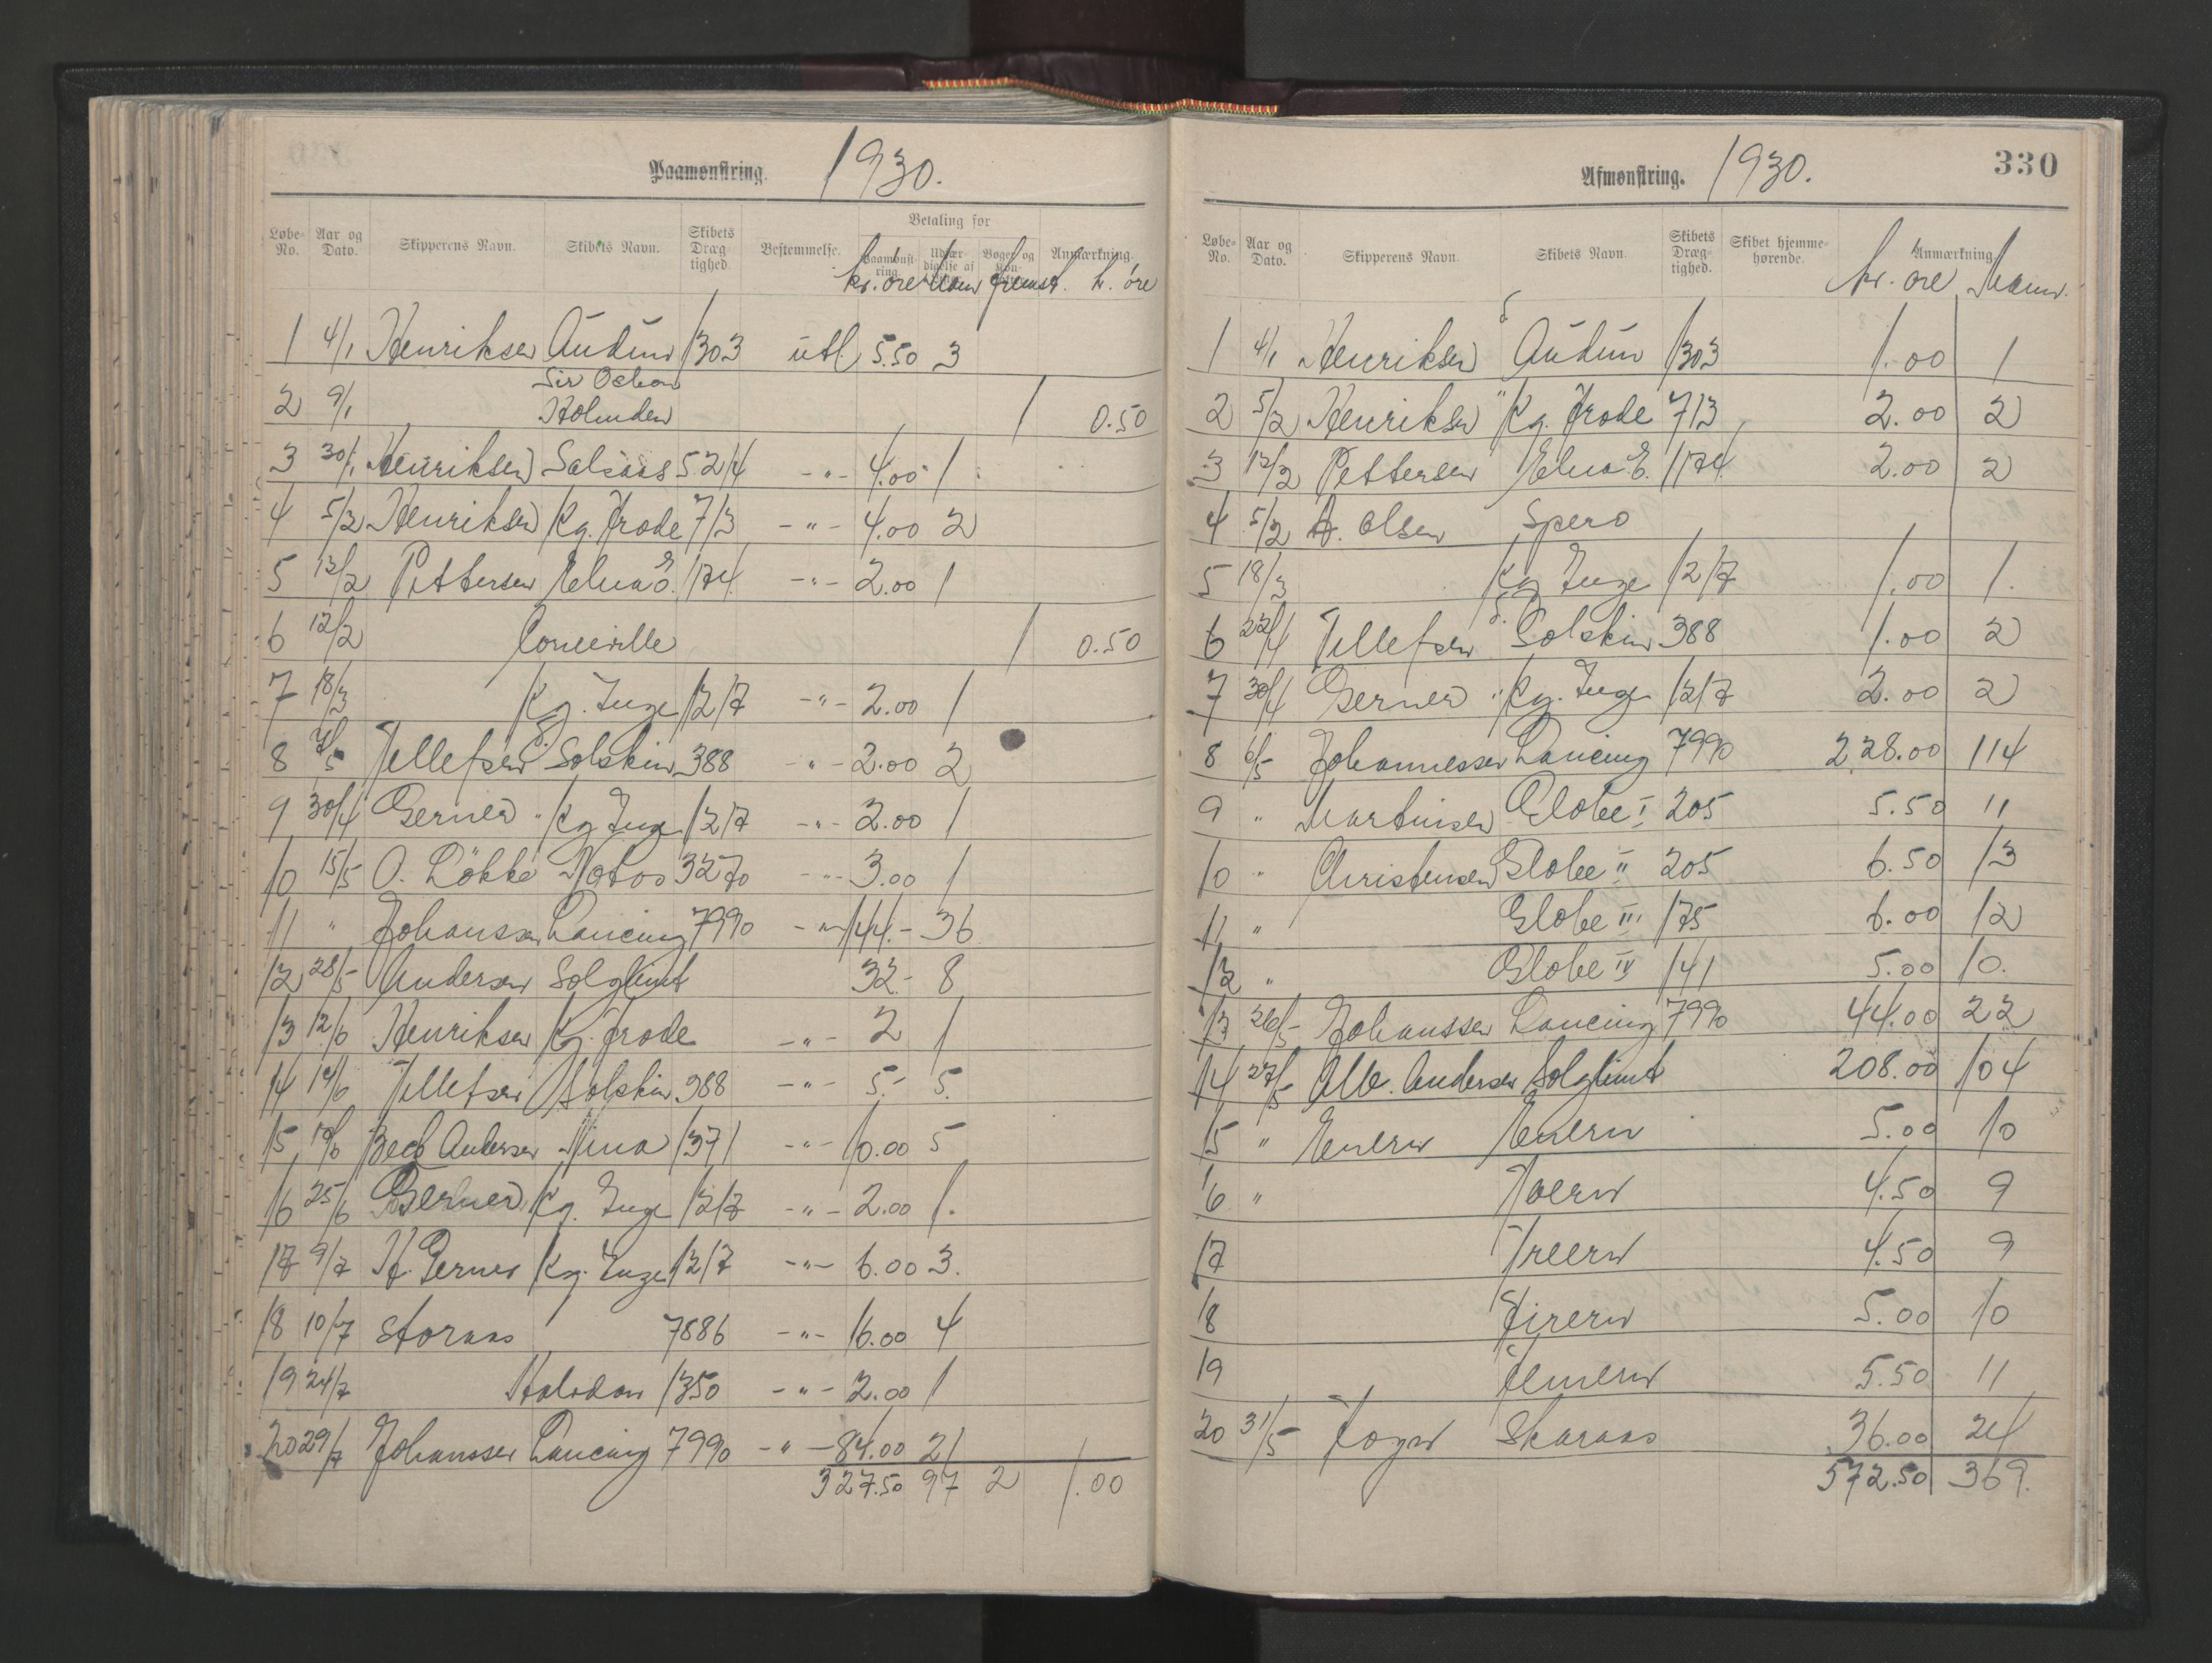 Paamønstring. 1930.
Løbe-No. Aar og Dato. Skipperens Navn. Skibets Navn. Skibets Dræg-tighed. Bestemmelse. Betaling for Paamønst-ring. Udfær-digelse af Bøger og Anmærkning.
kr. øre Mann fremst. kr. øre
1 4/1 Henriksen Audun 1303 utl. 5.50 3
2 9/1 Sir Osborn Holmden 1 0.50
3 30/1 Henriksen Salsaas 5214 -"- 4.00 1
4 5/2 Henriksen Kg. Frode 713 -"- 4.00 2
5 12/2 Pettersen Elna E. 1174 -"- 2.00 1
6 12/2 Corneville 1 0.50
7 18/3 Kg. Inge 1217 -"- 2.00 1
8 7/5 Tellefsen S. Solskin 388 -"- 2.00 2
9 30/4 Gerner " Kg. Inge 1217 -"- 2.00 1
10 15/5 O. Løkke Notos 3270 -"- 3.00 1
11 " Johanssen Lancing 7990 -"- 144.- 36
12 28/5 Andersen Solglimt 32- 8
13 12/6 Henriksen Kg. Frode -"- 2 1
14 14/6 Tellefsen Solskin 388 -"- 5.- 5.
15 19/6 Bech Andersen Nina 1371 -"- 10.00 5
16 25/6 Gerner Kg. Inge 1217 -"- 2.00 1.
17 9/7 H. Gerner Kg. Inge 1217 -"- 6.00 3.
18 10/7 Storaas 7886 -"- 16.00 4
19 24/7 Halvdan 1350 -"- 2.00 1
20 29/7 Johanssen Lancing 7990 -"- 84.00 21
327.50 97 2 1.00
Afmønstring. 1930. 330
Løbe-No. Aar og Dato. Skipperens Navn. Skibets Navn. Skibets Dræg-tighed. Skibet hjemme-hørende. Anmærkning
kr. øre Mann.
1 4/1 Henriksen S Audun 1303 1.00 1
2 5/2 Henriksen " Kg. Frode 713 2.00 2
3 12/2 Pettersen Elna E. 1174 2.00 2
4 5/2 A. Olsen Spero
5 18/3 Kg Inge 1217 1.00 1.
6 22/4 Tellefsen S. Solskin 388 1.00 2
7 30/4 Gerner " Kg. Inge 1217 2.00 2
8 6/5 Johannessen Lancing 7990 228.00 114
9 " Martinsen Globe I 205 5.50 11
10 " Christensen Globe II 205 6.50 13
11 " Globe III 175 6.00 12
12 " Globe IV 141 5.00 10.
13 26/5 Johanssen Lancing 7990 44.00 22
14 27/5 Alb. Andersen Solglimt 208.00 104
15 " Enern Enern 5.00 10
16 " Toern 4.50 9
17 Treern 4.50 9
18 Firern 5.00 10
19 Femern 5.50 11
20 31/5 Foyn Skaraas 36.00 24
572.50 369.